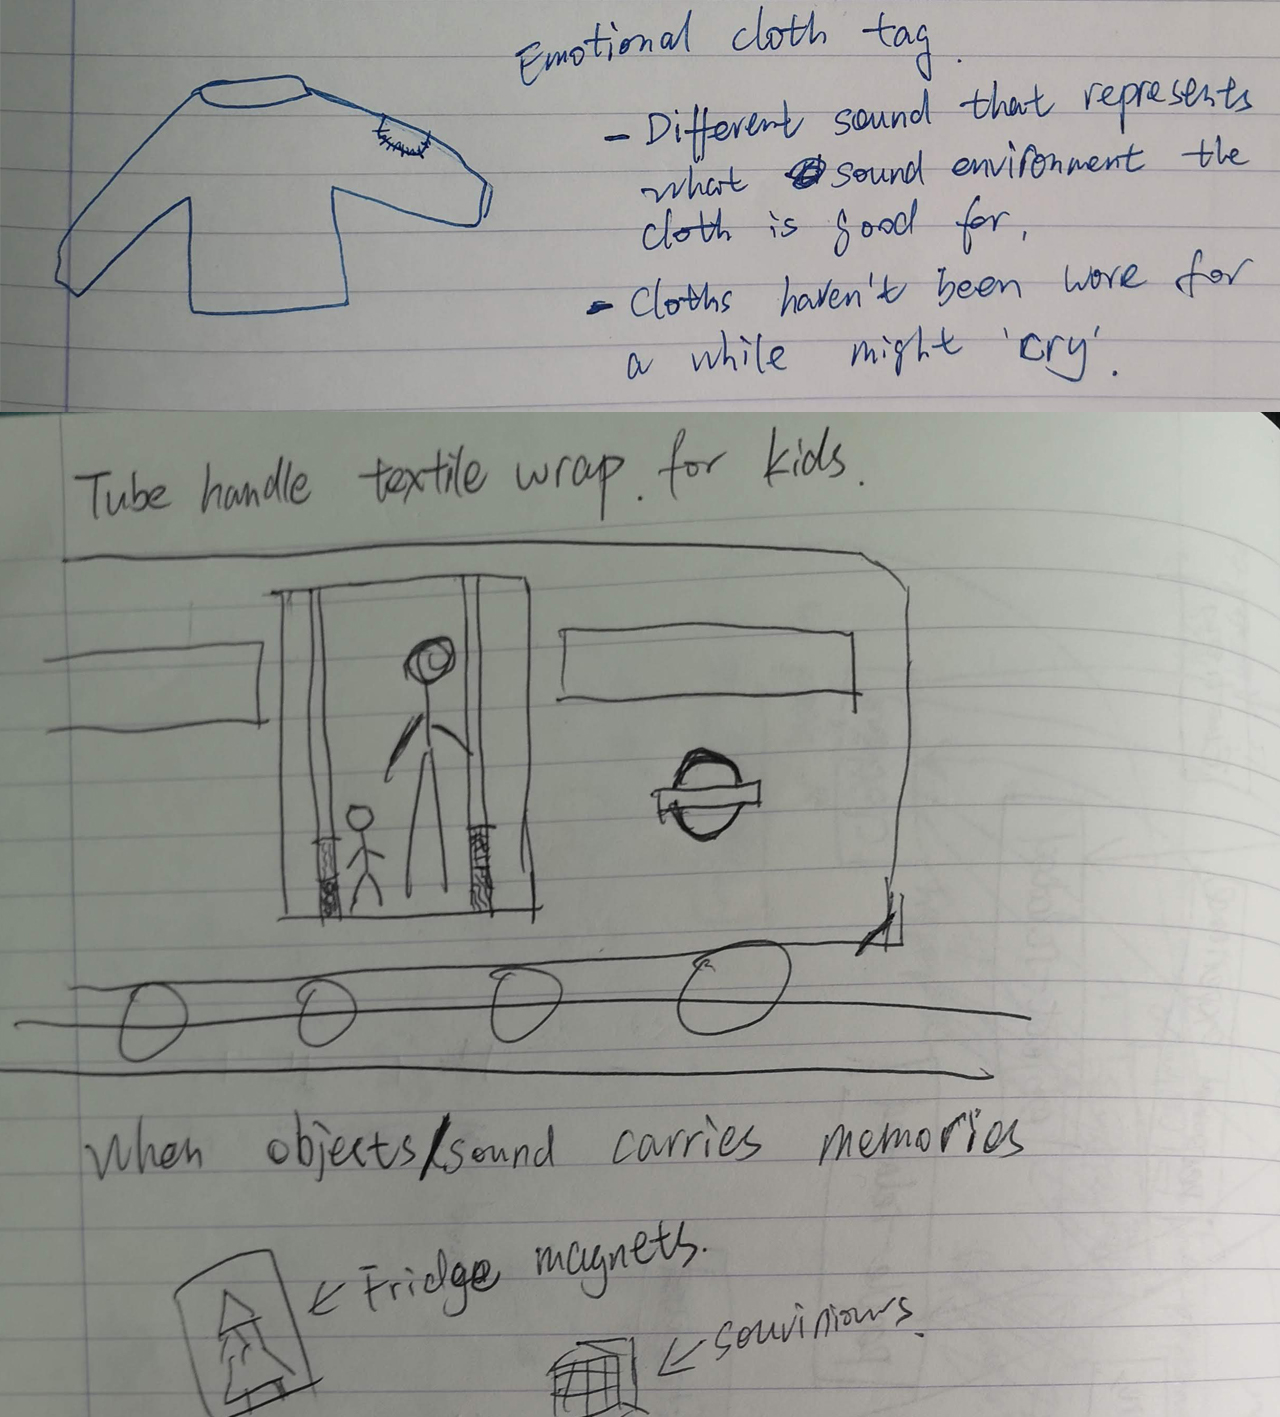 Emotional cloth tag.
- Different sound that represents
what sound environment the
cloth is good for,
- Cloths haven't been wore for
a while might 'cry'.
Tube handle textile wrap. for kids.
When objects/sound carries memories
← Fridge magnets.
← souviniours.